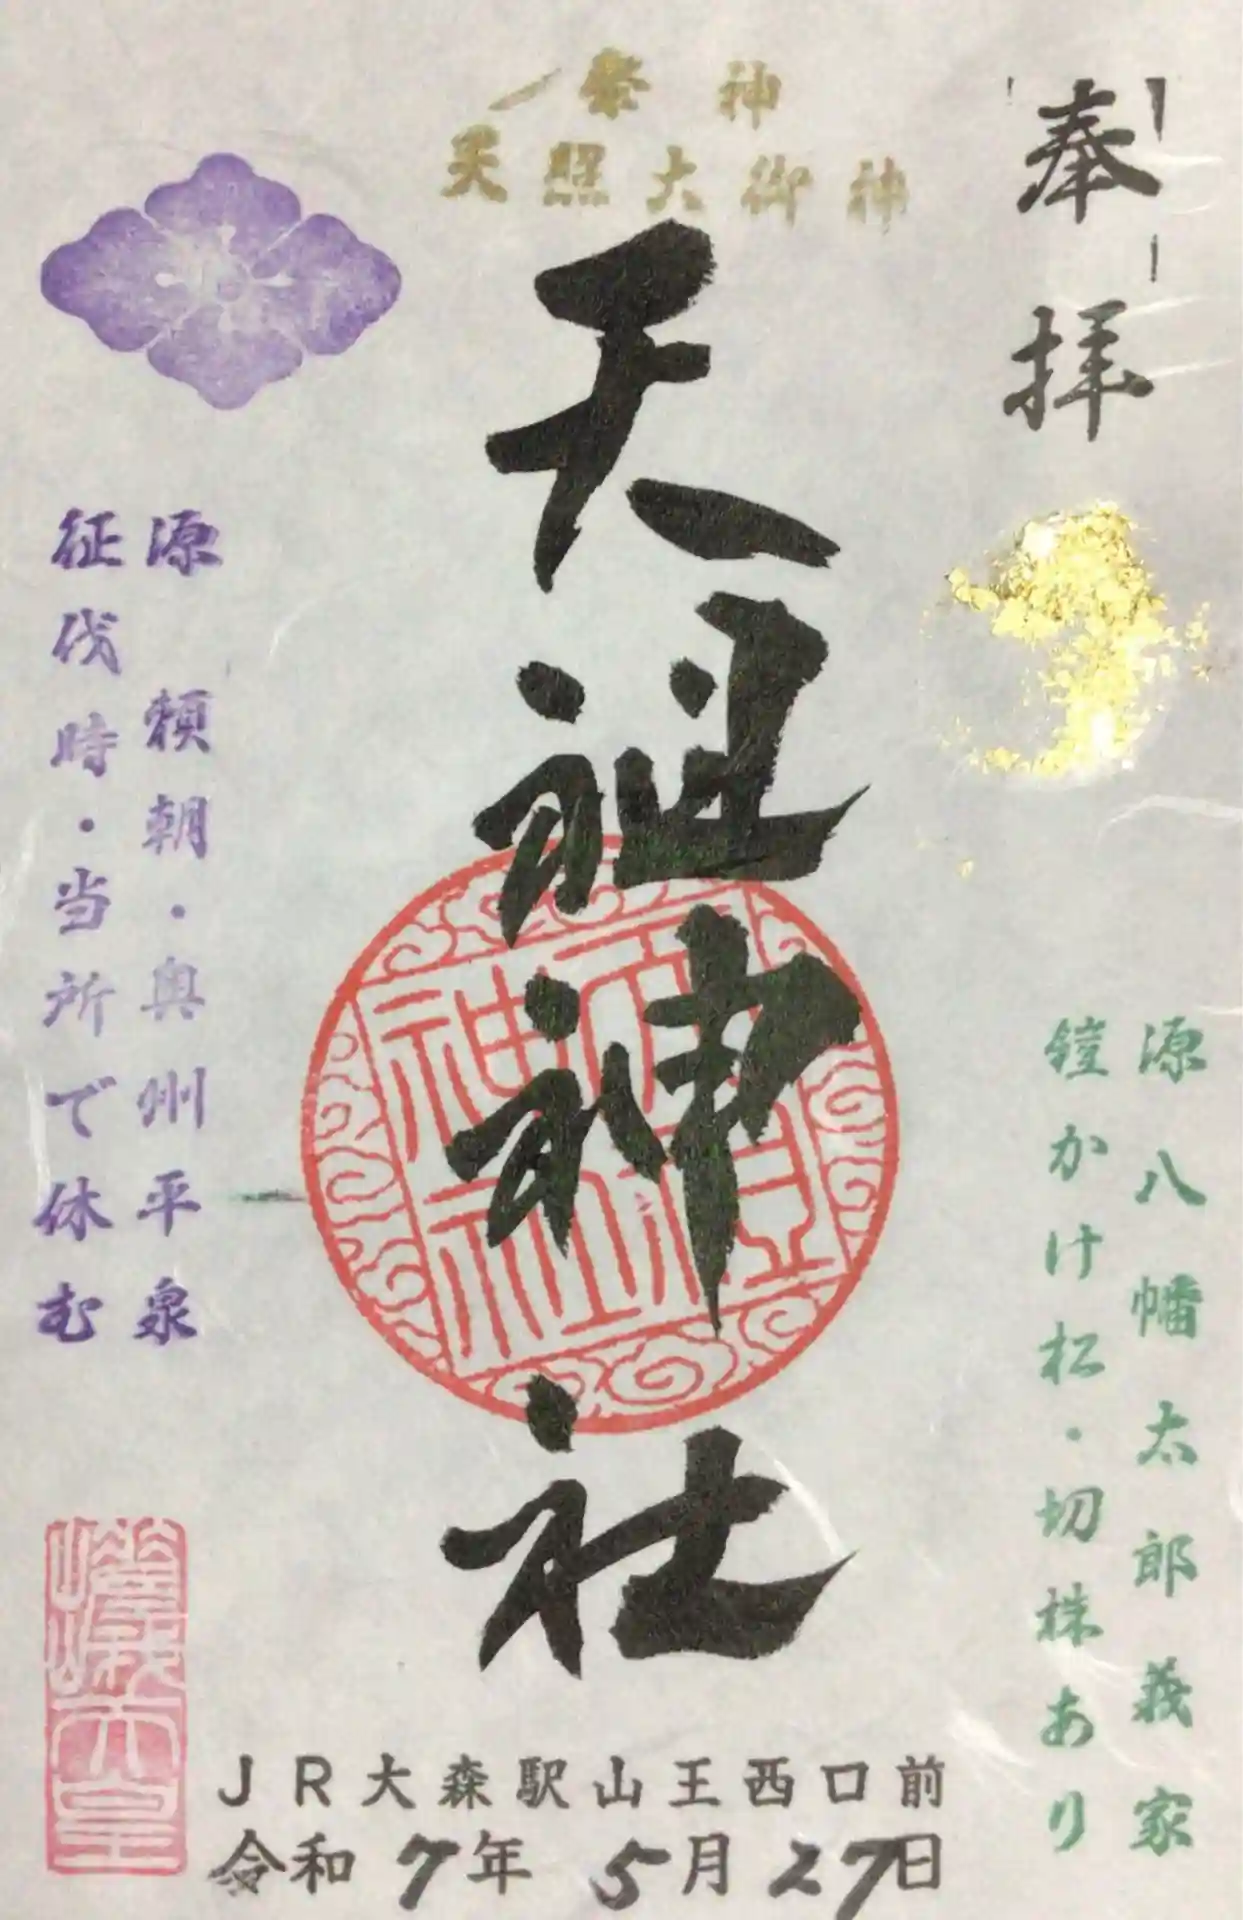 奉拝
源八幡太郎義家
鐙かけ松・切株あり
祭神
天照大御神
天祖神社
源頼朝・奥州平泉
征伐時・当所で休む
JR大森駅山王西口前
令和7年5月27日